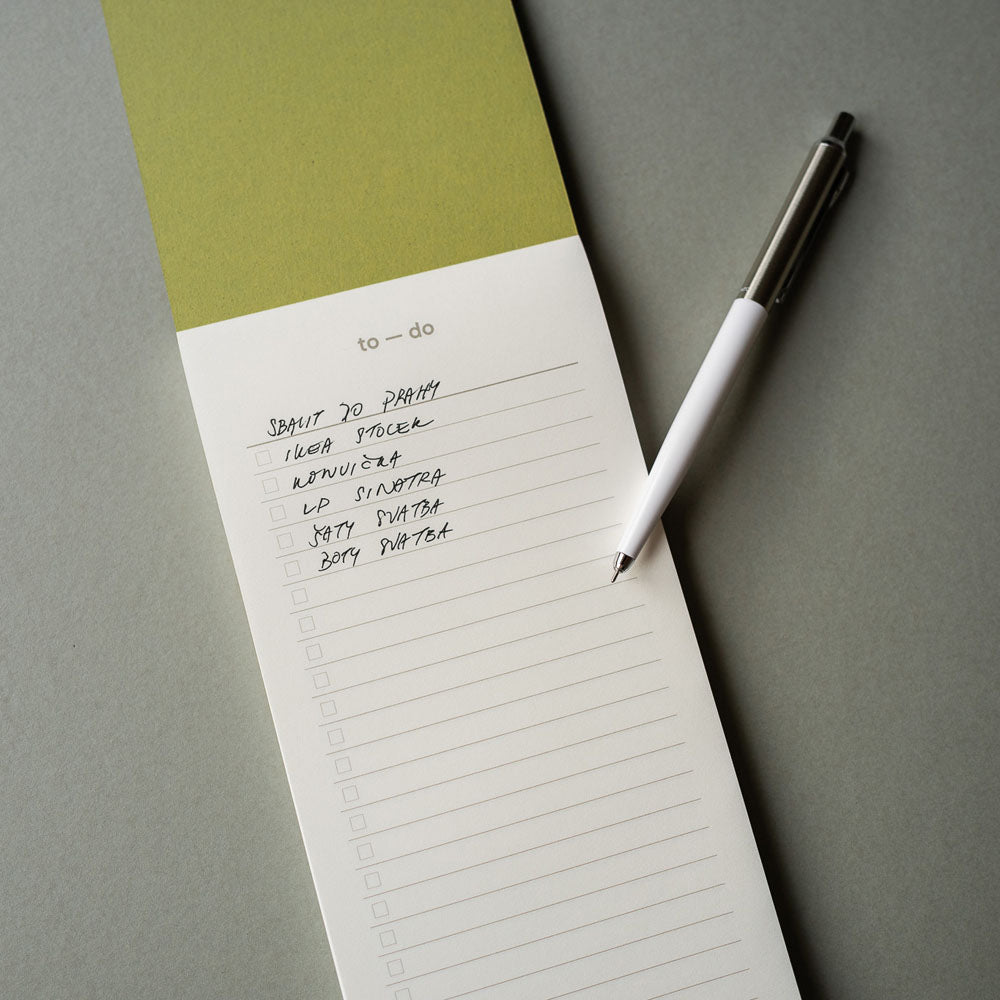 to — do
SBALIT DO PRAHY
IKEA STOLEK
KONVIČKA
LP SINATRA
ŠATY SVATBA
BOTY SVATBA